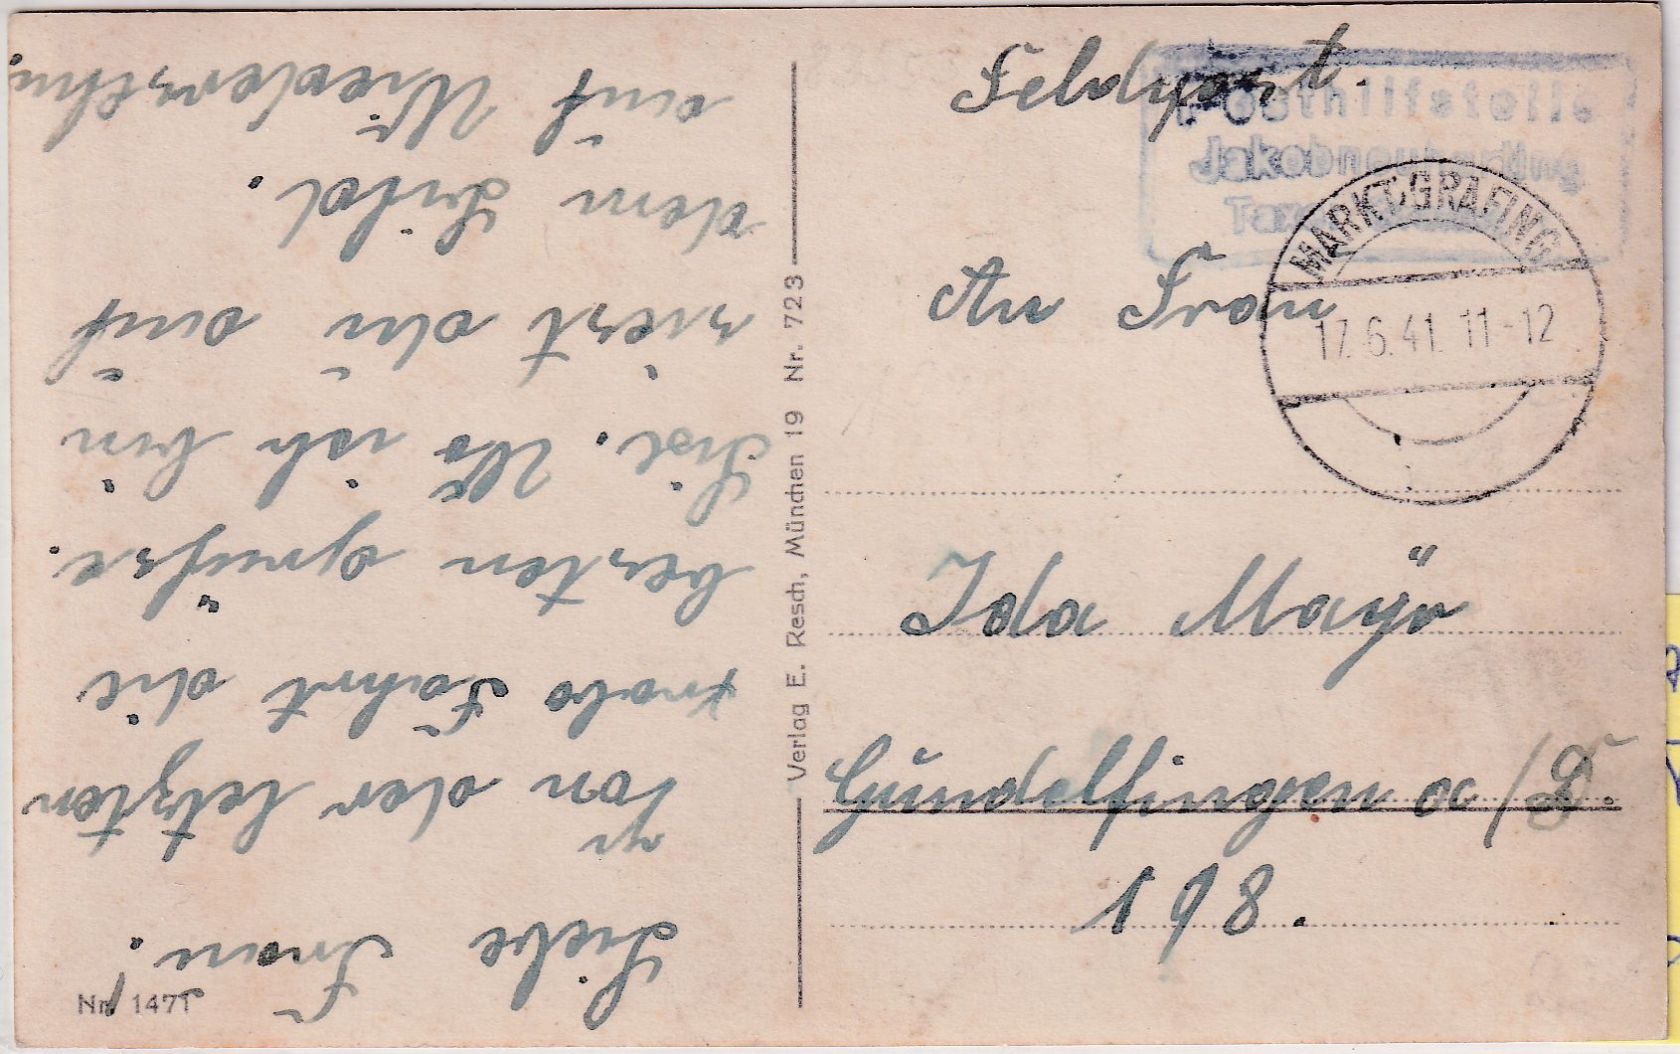 Feldpost.
Posthilfstelle
Jakobneuharting
MARKT GRAFING
17.6.41. 11-12
An Frau
Ida Mayö
Gundelfingen a/D.
168.
Verlag E. Resch, München 19 Nr. 723
Nr. 1471
Liebe Frau!
von der letzten
Fahrt die
besten grüßse.
Wo ich bin
siest du auf
dem Bild.
auf Wiedersehn.